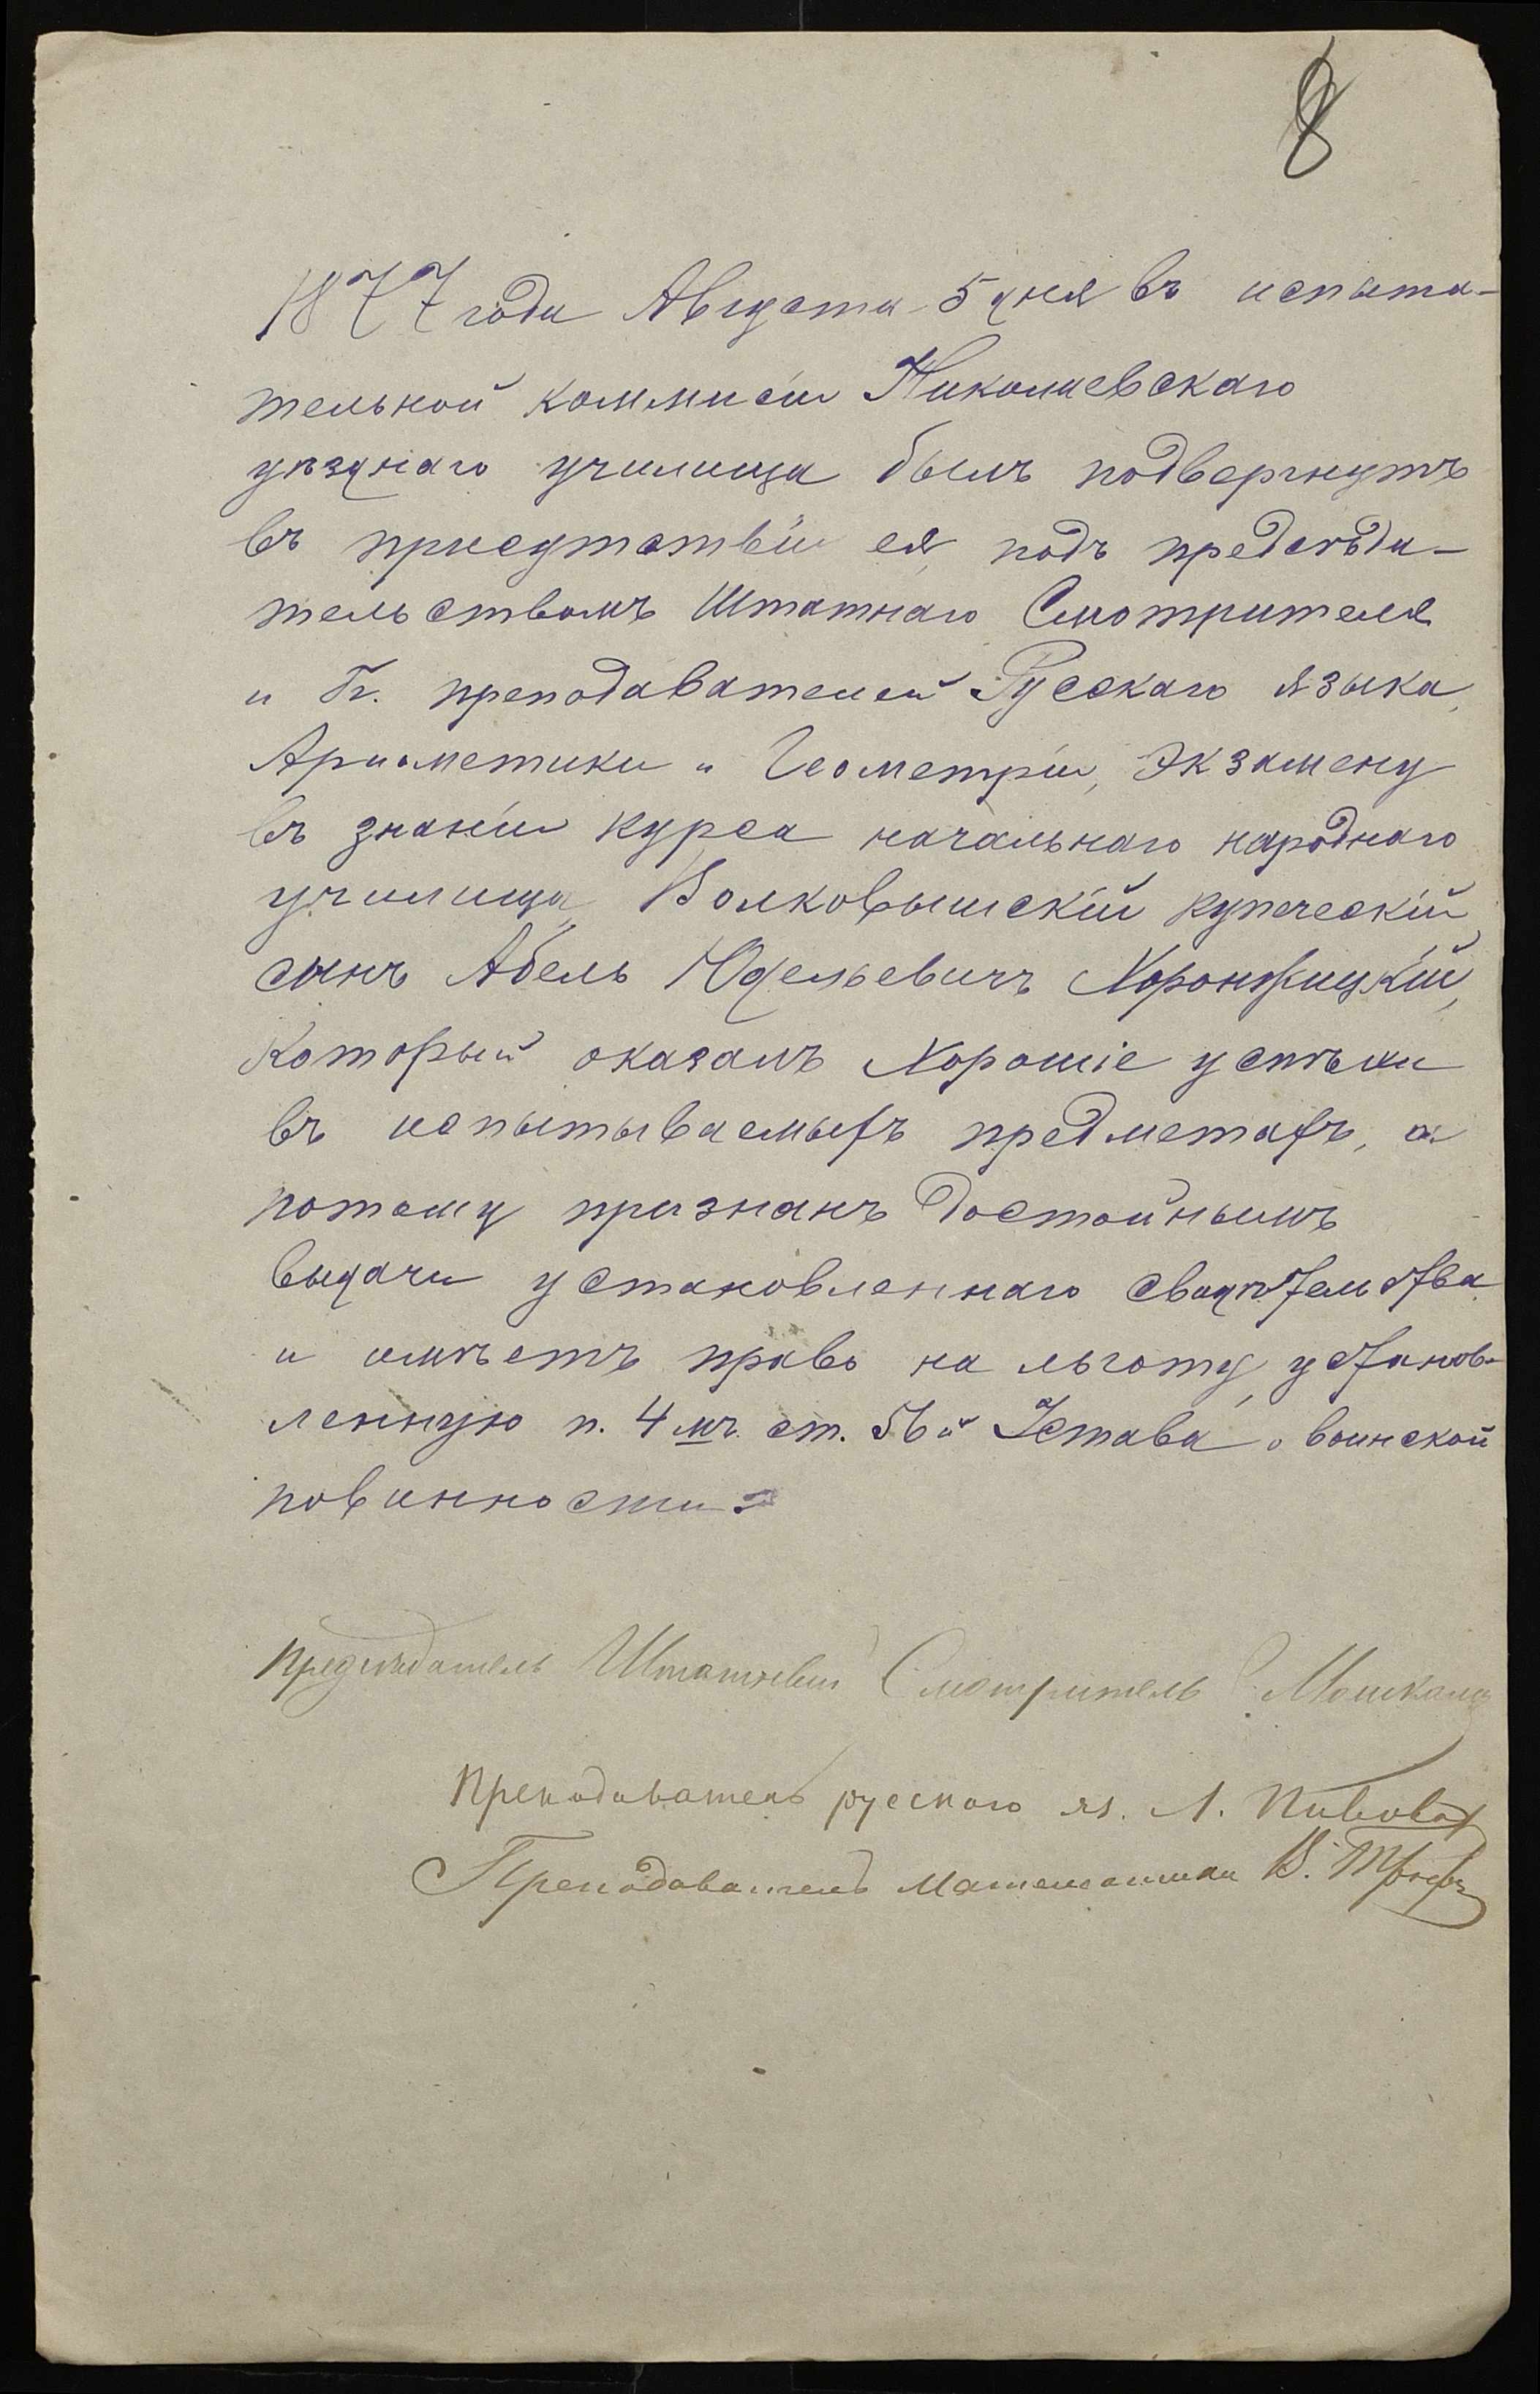 8
1877 года Августа 5 дня въ испыта-
тельной коммисіи Николаевскаго
уѣзднаго училища былъ подвергнутъ
въ присутствіи ея, подъ предсѣда-
тельствомъ Штатнаго Смотрителя
и Гг. преподавателей Русскаго языка,
Ариѳметики и Геометріи, экзамену
въ знаніи курса начальнаго народнаго
училища, Волковышскій купеческій
сынъ Абель Юдельевичъ Хоронжицкій,
который оказалъ хорошіе успѣхи
въ испытываемыхъ предметахъ, а
потому признанъ достойнымъ
выдачи установленнаго свидѣтельства
и имѣетъ право на льготу, установ-
ленную п. 4мъ ст. 56й Устава о воинской
повинности.
Предсѣдатель Штатный Смотритель
Преподаватель русскаго яз. Л.
Преподаватель Математики В.